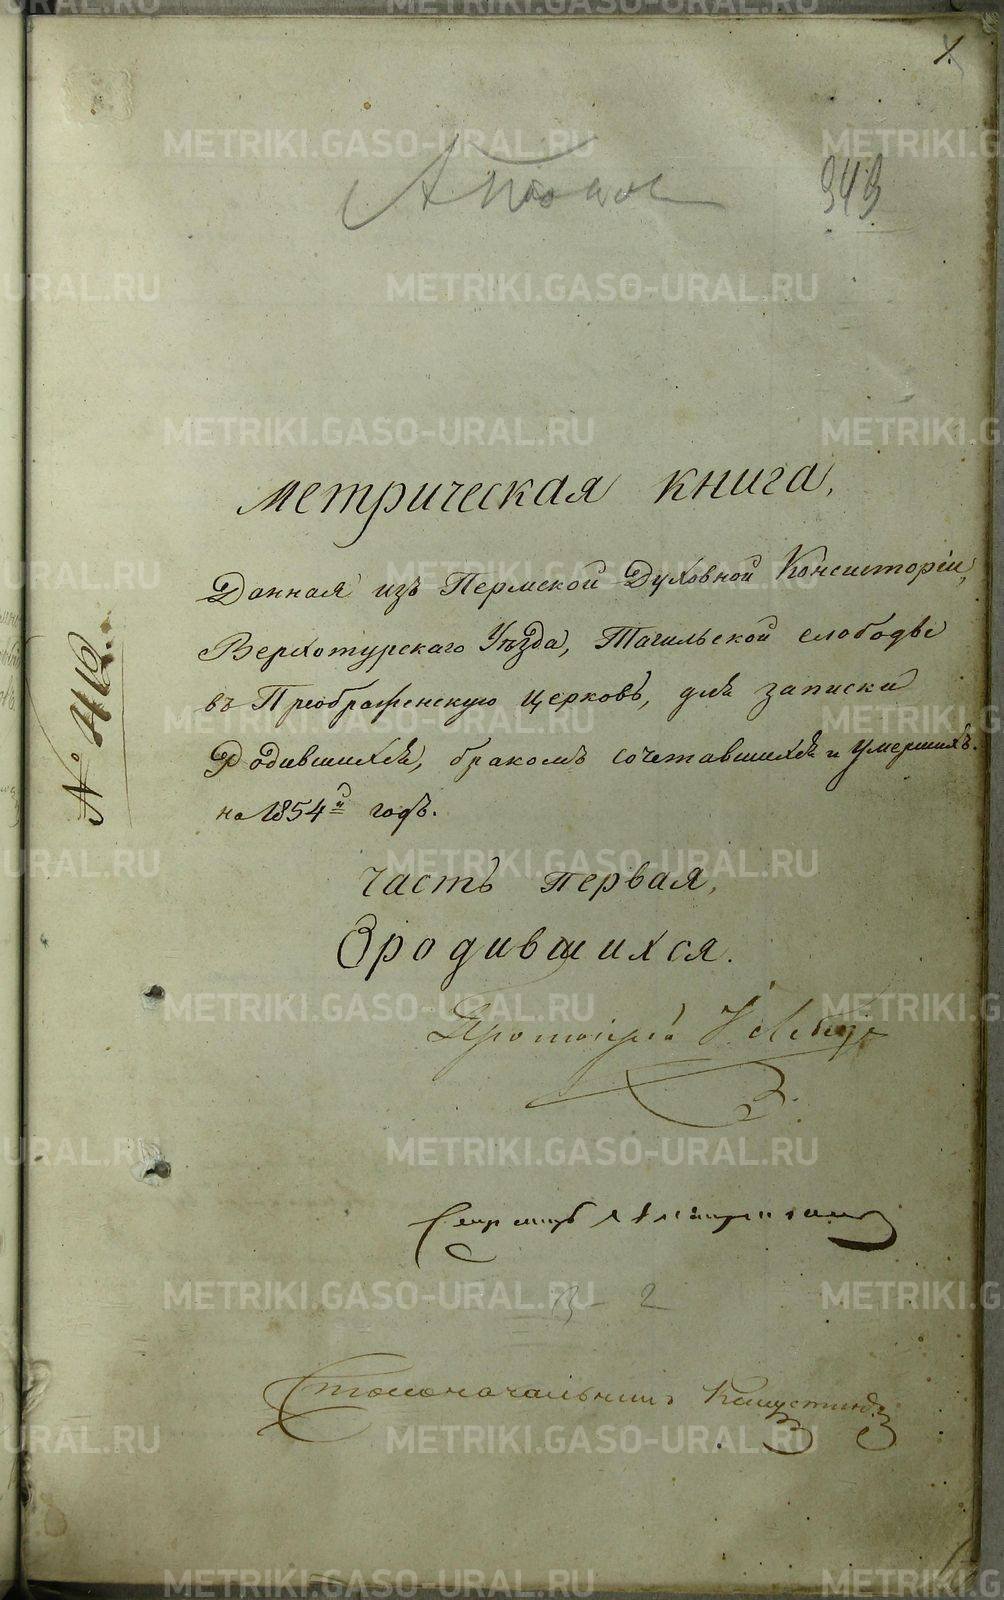 1.
343
Метрическая книга,
Данная изъ Пермской Духовной Консисторіи,
Верхотурскаго Уѣзда, Тагильской слободѣ
въ Преображенскую церковь, для записки
Родившихся, бракомъ сочетавшихся и умершихъ.
на 1854й годъ.
№ 412.
Часть первая,
О родившихся.
Протоіерей
Секретарь
2
Столоначальникъ Капустинъ
METRIKI.GASO-URAL.RU